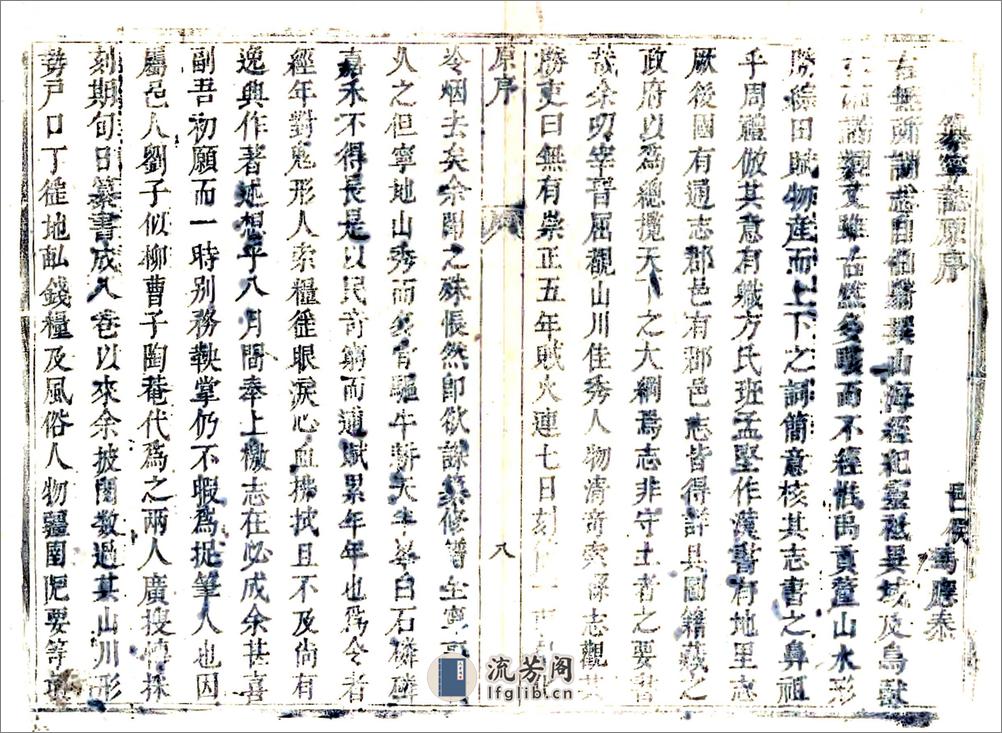 纂寧誌原序
邑侯馬應泰
古無所謂志自伯翳撰山海經紀靈祇異域及鳥獸
類文雖古然多駭而不經惟禹貢釐山水形
勝綜田賦物產而上下之詞簡意核其志書之鼻祖
乎周禮倣其意有職方氏班孟堅作漢書有地里志
厥後國有通志郡邑有郡邑志皆得詳其圖籍藏之
政府以為總攬天下之大綱焉志非守土者之要書
哉余叨宰晉屈觀山川佳秀人物清奇索縣志觀其
勝吏曰無有崇正五年賊火連七日刻
原序
八
冷烟去矣余聞之殊悵然即欲諏纂修譜生寧
人之但寧地山秀而多首驅牛驕天半峯白石磷磷
嘉禾不得長是以民奇窮而逋賦累年年也為令者
經年對鬼形人索糧徒眼淚心血拂拭且不及尙有
逸興作著述想乎八月間奉上檄志在必成余甚喜
副吾初願而一時别務鞅掌仍不暇為捉筆人也因
屬邑人劉子似柳曹子陶菴代為之兩人廣搜博採
刻期旬日纂書成八卷以來余披閱数過其山川形
勢戸口丁徭地畝錢糧及風俗人物疆圉阨要等
流芳阁
lfglib.cn